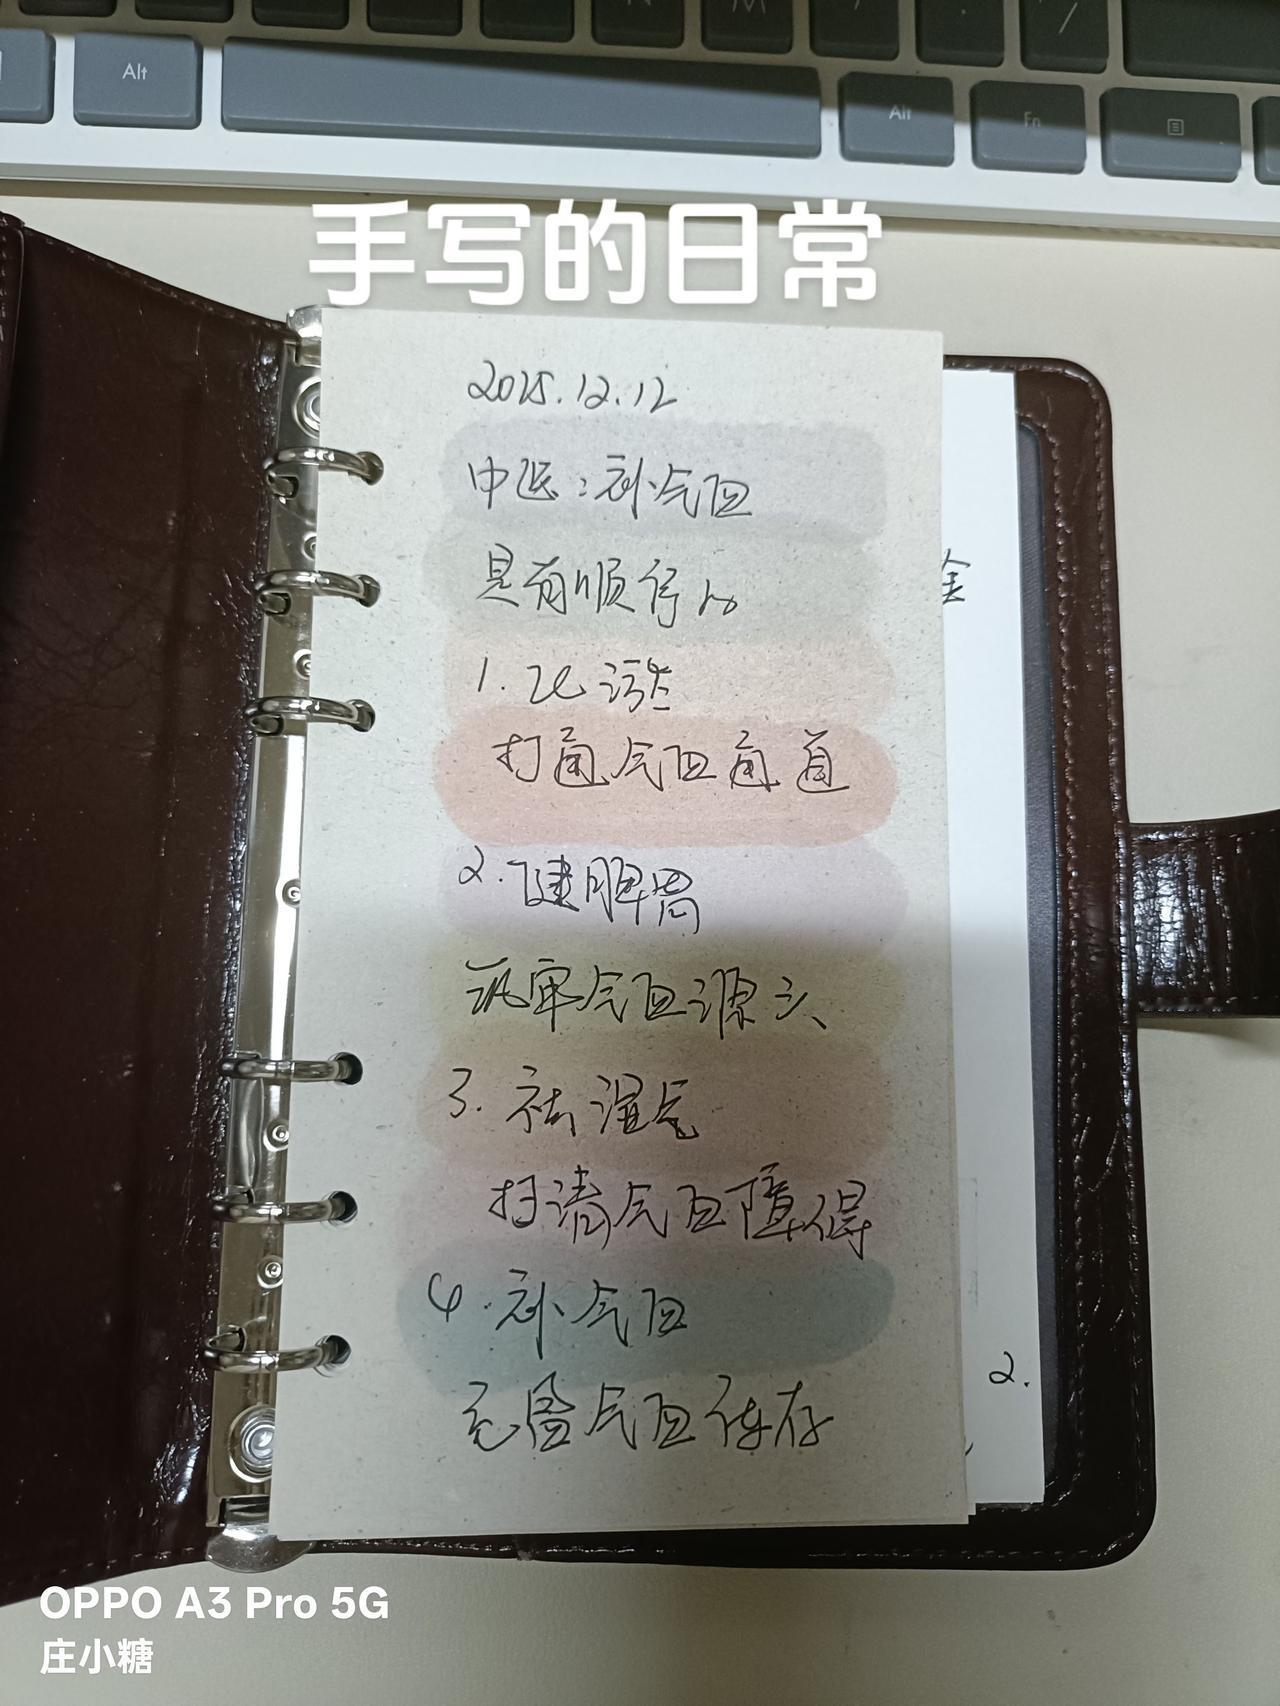 Alt
Alt
Fn
手写的日常
2025.12.12
中医:补气血
是有顺序的
1.化淤
打通气血通道
2.健脾胃
筑牢气血源头
3.祛湿气
扫清气血障碍
4.补气血
充盈气血库存
金
2.
OPPO A3 Pro 5G
庄小糖